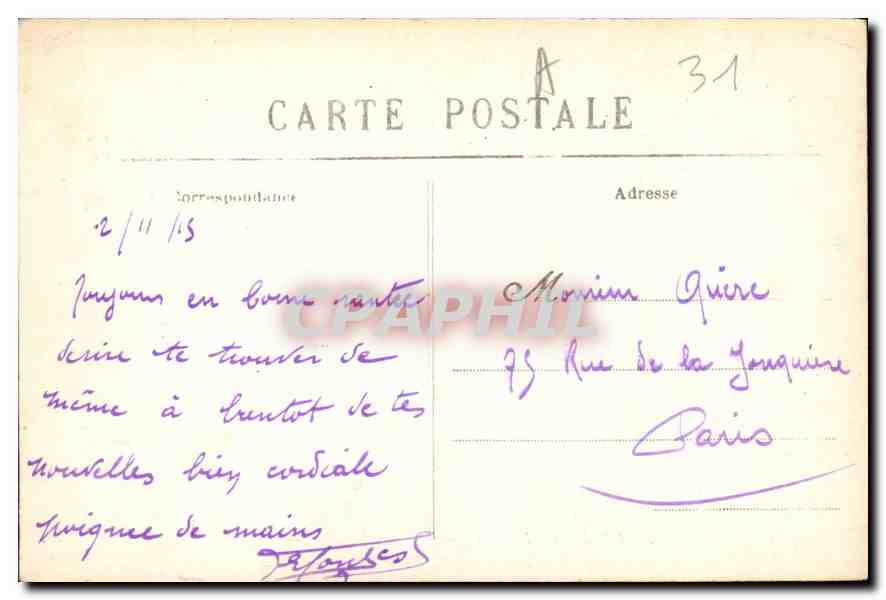 A
31
CARTE POSTALE
Correspondance
Adresse
2/11/15
Toujours en bonne santée
desire te trouver de
même à bientot de tes
nouvelles bien cordiale
poignee de mains
Monsieur Quere
75 Rue de la Jonquiere
Paris
CPAPHIL